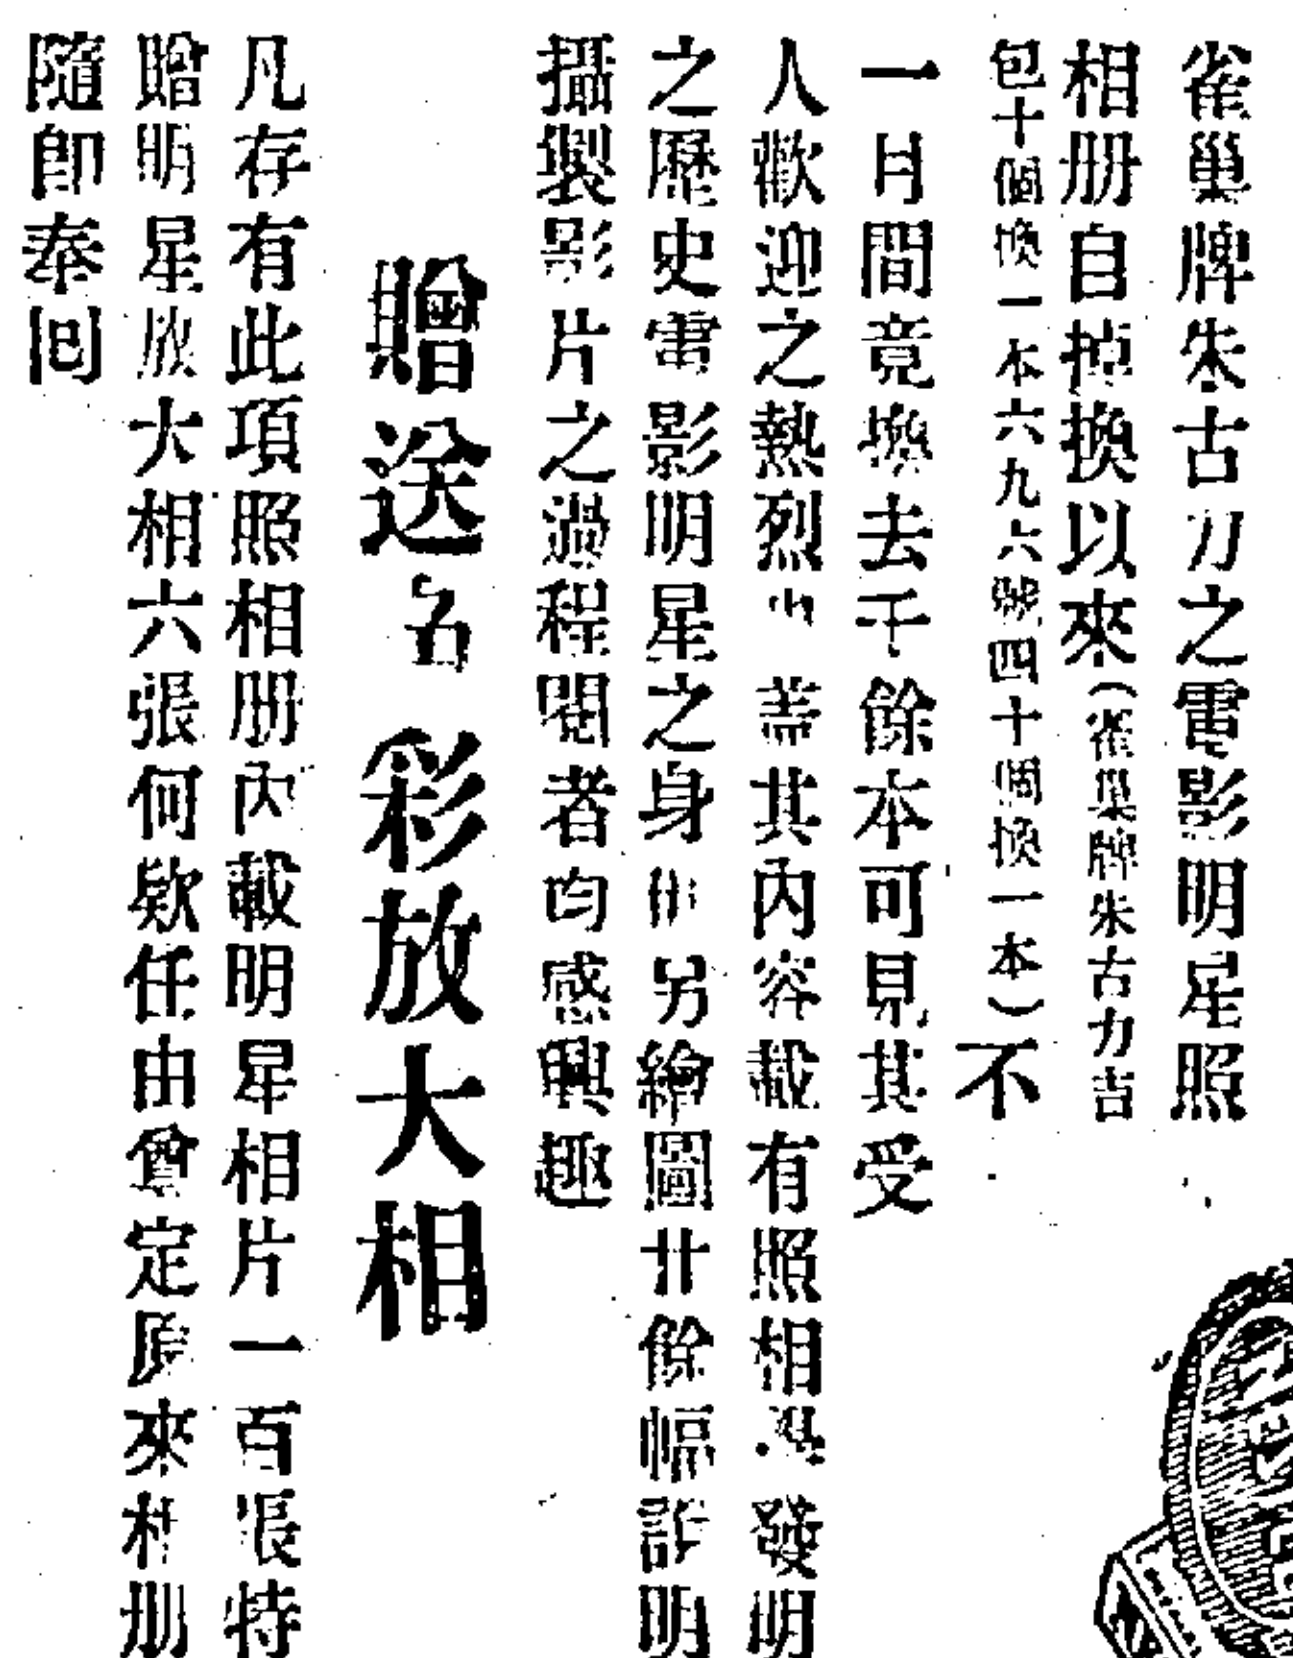 雀巢牌朱古力之電影明星照
相册自掉換以來(雀巢牌朱古力吉
包十個換一本六九六號四十個換一本)不
一月間竟換去千餘本可見其受
人歡迎之熱烈 蓋其内容載有照相 發明
之歷史電影明星之身 另繪圖廿餘幅詳明
攝製影片之過程閱者均感興趣
贈送 彩放大相
凡存有此項照相册内載明星相片一百張特
贈明星放大相六張何欵任由尊定原來相册
隨即奉回